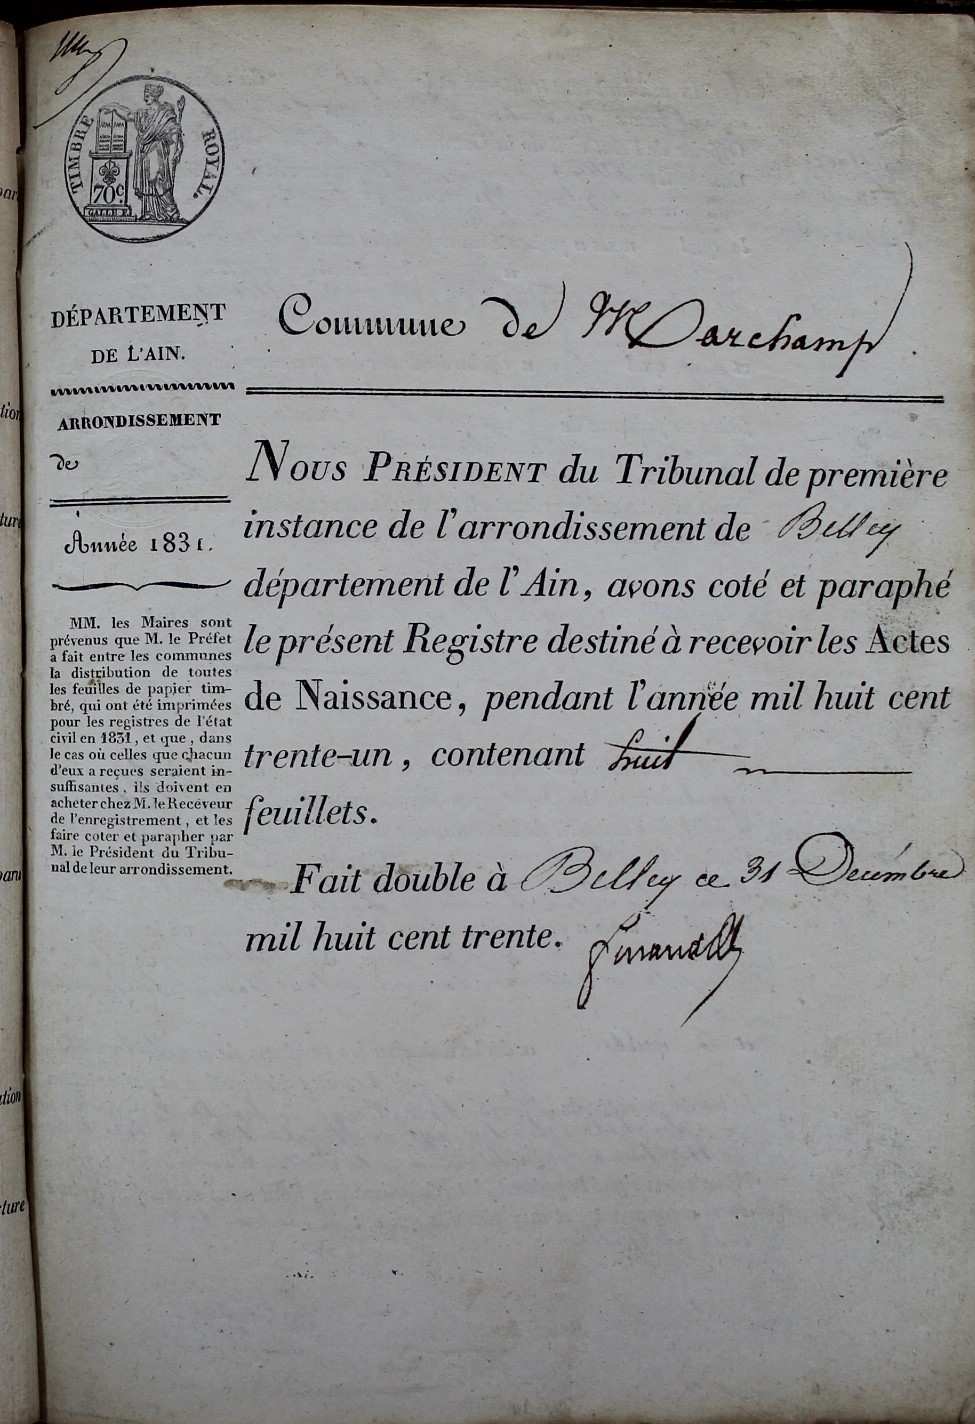 TIMBRE ROYAL.
70c.
DÉPARTEMENT
DE L'AIN.
ARRONDISSEMENT
de
Année 1831.
MM. les Maires sont
prévenus que M. le Préfet
a fait entre les communes
la distribution de toutes
les feuilles de papier tim-
bré, qui ont été imprimées
pour les registres de l'état
civil en 1831, et que, dans
le cas où celles que chacun
d'eux a reçues seraient in-
suffisantes, ils doivent en
acheter chez M. le Receveur
de l'enregistrement, et les
faire coter et parapher par
M. le Président du Tribu-
nal de leur arrondissement.
Commune de Marchamp.
NOUS PRÉSIDENT du Tribunal de première
instance de l'arrondissement de Belley
département de l'Ain, avons coté et paraphé
le présent Registre destiné à recevoir les Actes
de Naissance, pendant l'année mil huit cent
trente-un, contenant huit
feuillets.
Fait double à Belley ce 31 Decémbre
mil huit cent trente.